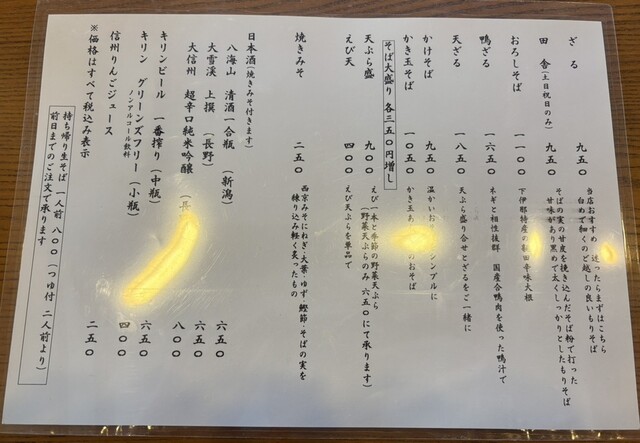 ざる 九五〇
当店おすすめ 迷ったらまずはこちら
白めで細くのど越しの良いもりそば
田舎(土日祝日のみ) 九五〇
そばの実の甘皮を挽き込んだそば粉で打った
甘味があり黒めで太くしっかりとしたもりそば
おろしそば 一一〇〇
下伊那特産の 辛味大根
鴨ざる 一六五〇
ネギと相性抜群 国産合鴨肉を使った鴨汁で
天ざる 一八五〇
天ぷら盛り合せとざるをご一緒に
かけそば 九五〇
温かいお シンプルに
かき玉そば 九五〇
かき玉あ のおそば
そば大盛り 各三五〇円増し
天ぷら盛 九〇〇
えび一本と季節の野菜天ぷら
(野菜天ぷらのみ 六五〇にて承ります)
えび天 四〇〇
えび天ぷらを単品で
焼きみそ 二五〇
西京みそにねぎ・大葉・ゆず・鰹節・そばの実を
練り込み軽く炙ったもの
日本酒(焼きみそ付きます)
八海山 清酒一合瓶 (新潟) 六五〇
大雪渓 上撰 (長野) 六五〇
大信州 超辛口純米吟醸 (長 八〇〇
キリンビール 一番搾り(中瓶) 六五〇
キリン グリーンズフリー(小瓶) 四〇〇
ノンアルコール飲料
信州りんごジュース 二五〇
※価格はすべて税込み表示
持ち帰り生そば 一人前 八〇〇(つゆ付 二人前より)
前日までのご注文で承ります